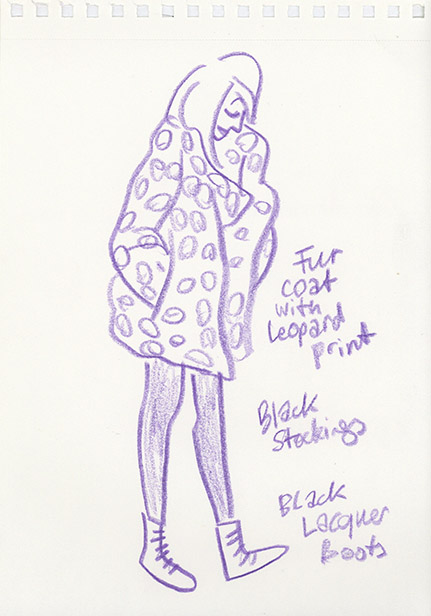 Fur
coat
with
Leopard
print
Black
Stockings
Black
Lacquer
Boots